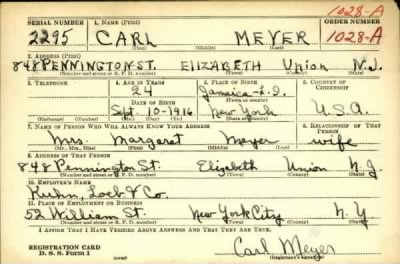 1028-A
SERIAL NUMBER 1. NAME (Print) ORDER NUMBER
2295 CARL MEYER 1028-A
(First) (Middle) (Last)
2. ADDRESS (Print)
848 PENNINGTON ST. ELIZABETH Union N.J.
(Number and street or R. F. D. number) (Town) (County) (State)
3. TELEPHONE 4. AGE IN YEARS 5. PLACE OF BIRTH 6. COUNTRY OF CITIZENSHIP
24 Jamaica-L.I.
DATE OF BIRTH (Town or county)
Sept. 10-1916 New York U.S.A.
(Exchange) (Number) (Mo.) (Day) (Yr.) (State or country)
7. NAME OF PERSON WHO WILL ALWAYS KNOW YOUR ADDRESS 8. RELATIONSHIP OF THAT PERSON
Mrs. Margaret Meyer wife
(Mr., Mrs., Miss) (First) (Middle) (Last)
9. ADDRESS OF THAT PERSON
848 Pennington St. Elizabeth Union N.J.
(Number and street or R. F. D. number) (Town) (County) (State)
10. EMPLOYER'S NAME
Kuhn, Loeb & Co.
11. PLACE OF EMPLOYMENT OR BUSINESS
52 William St. New York City N.Y
(Number and street or R. F. D. number) (Town) (County) (State)
I AFFIRM THAT I HAVE VERIFIED ABOVE ANSWERS AND THAT THEY ARE TRUE.
REGISTRATION CARD
D. S. S. Form 1 Carl Meyer
(over) (Registrant's signature)